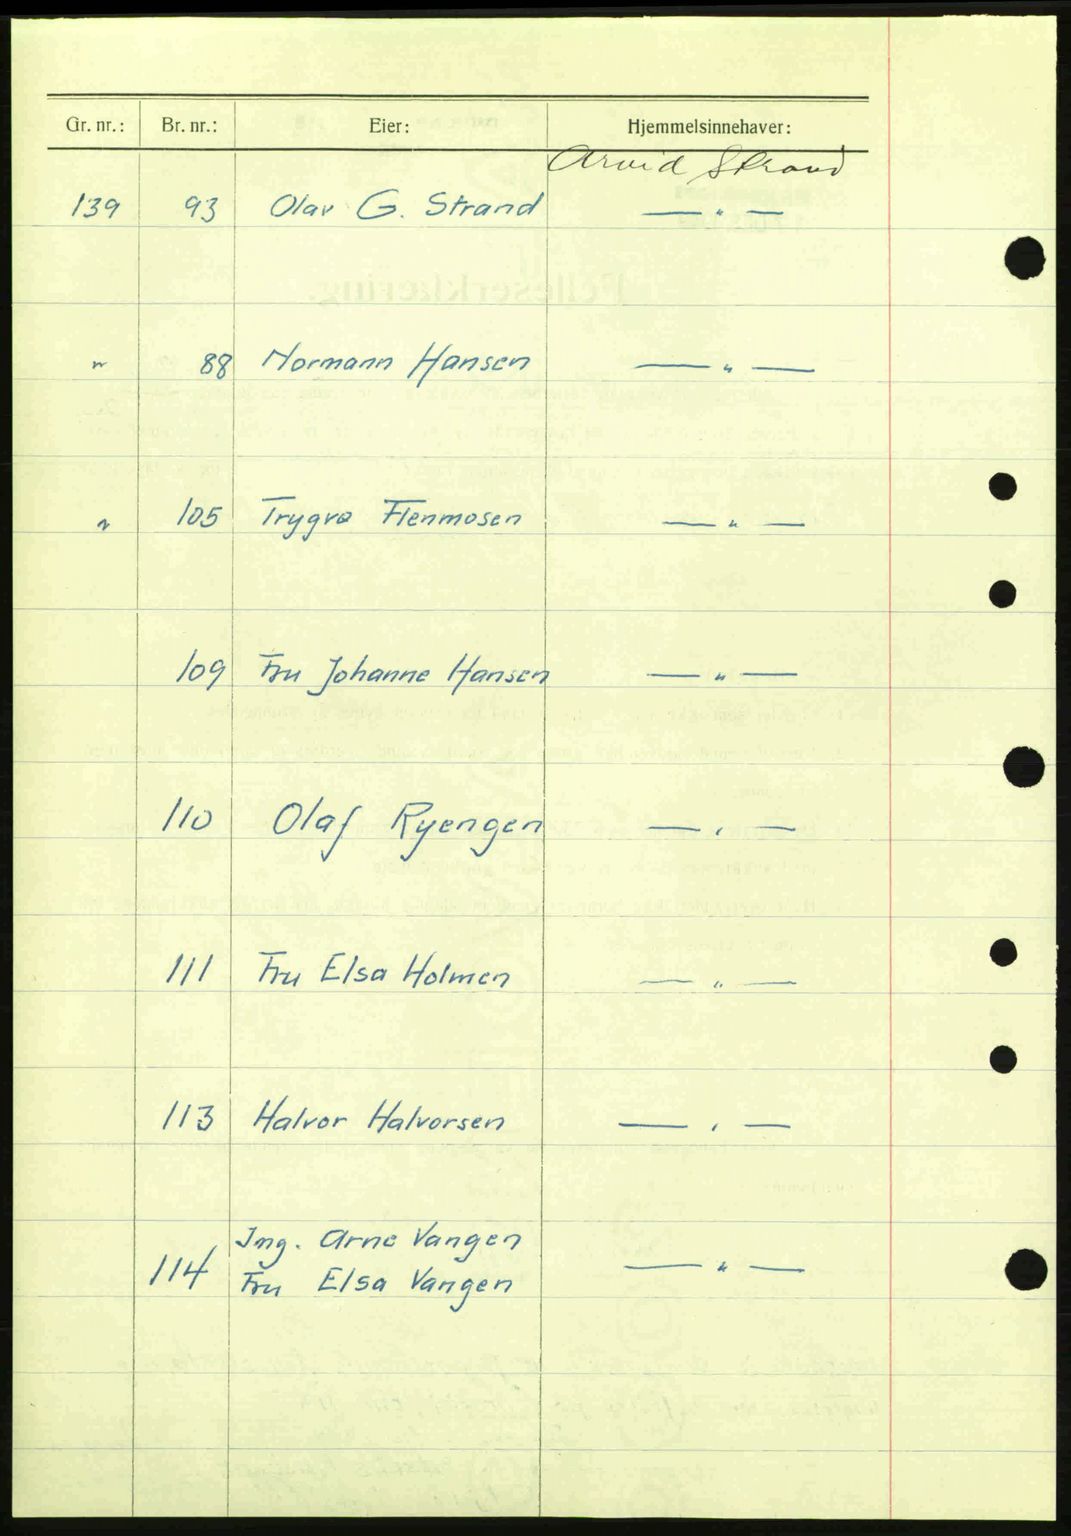 Gr. nr.: Br. nr.: Eier: Hjemmelsinnehaver:
Arvid Strand
139 93 Olav G. Strand — " —
" 88 Normann Hansen — " —
" 105 Trygve Flenmosen — " —
109 Fru Johanne Hansen — " —
110 Olaf Ryengen — " —
111 Fru Elsa Holmen — " —
113 Halvor Halvorsen — " —
Ing. Arne Vangen
114 Fru Elsa Vangen — " —